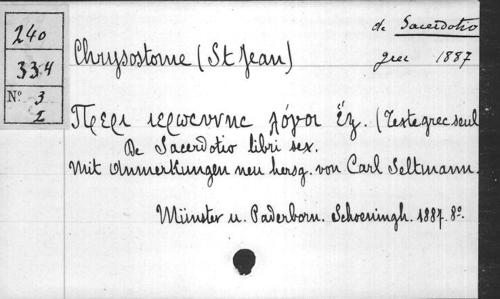 240
334
N° 3
2
de Sacerdotio
grec 1887
Chrysostome (St Jean)
Περι ιερωσυνης λόγοι ἕξ. (Texte grec seul
De Sacerdotio libri sex.
Mit Anmerkungen neu hersg. von Carl Seltmann.
Münster u. Paderborn. Schoeningh. 1887. 8°.